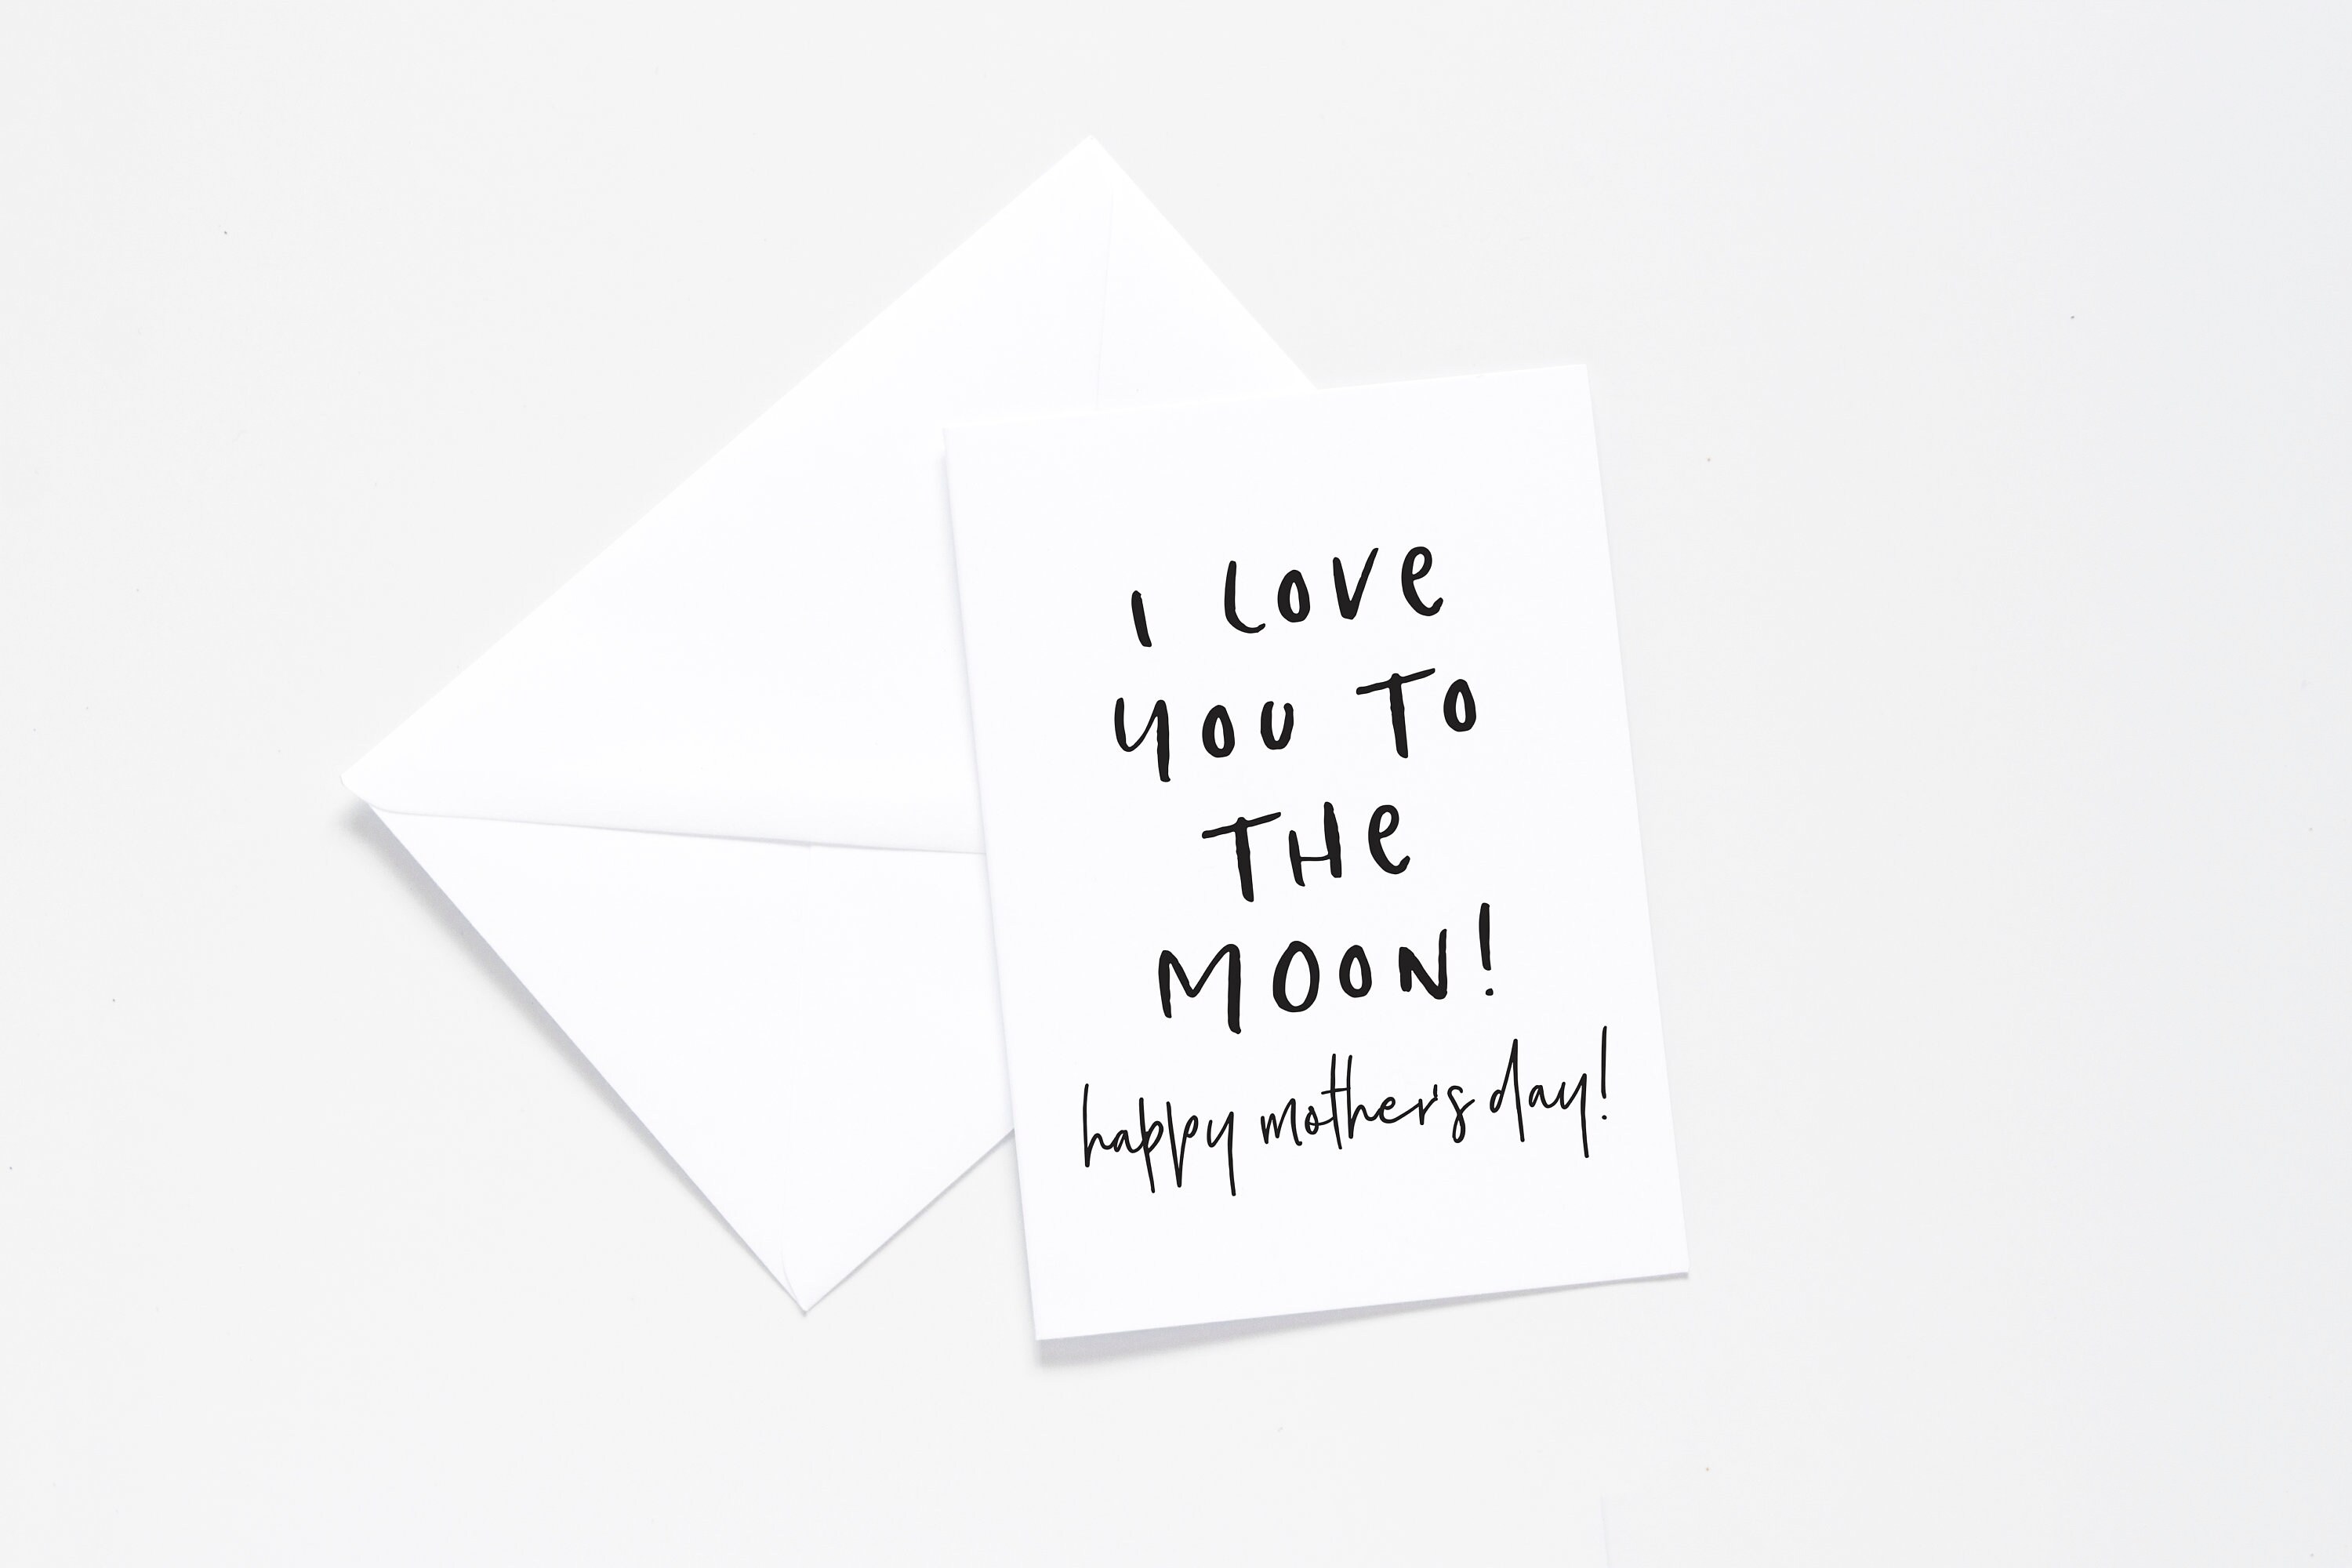 I LOVE
YOU TO
THE
MOON!
happy mother's day!